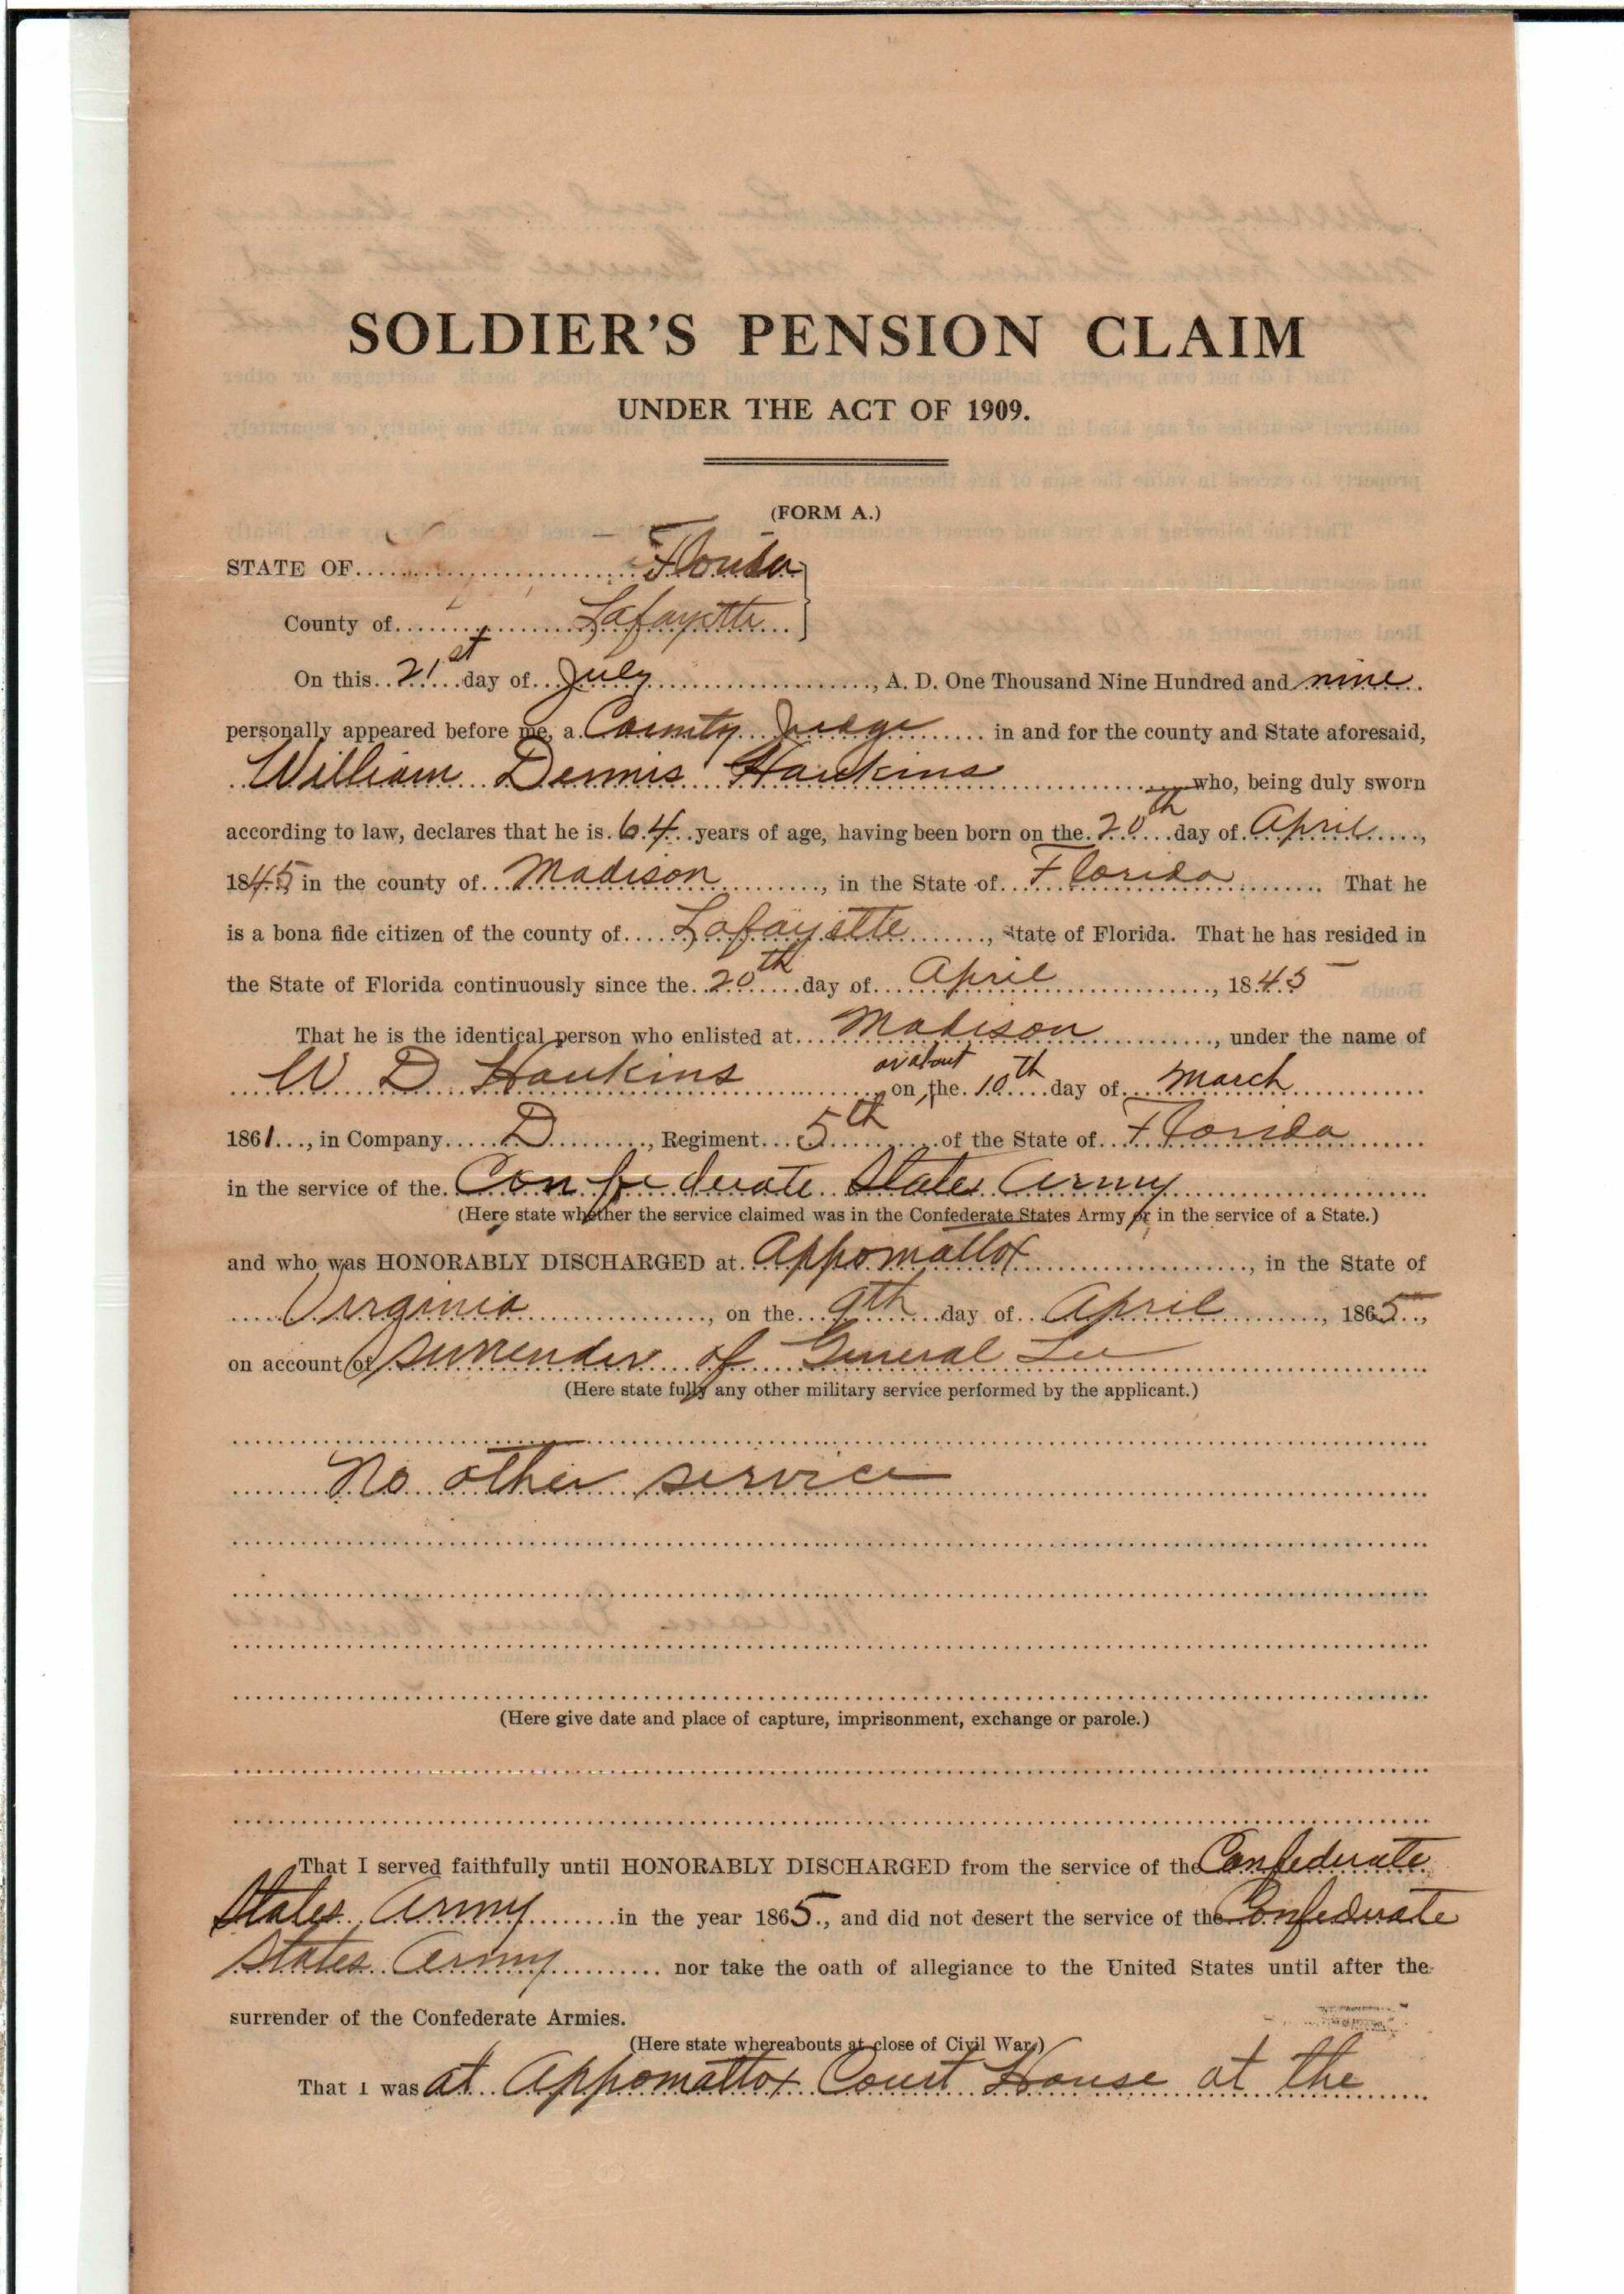 SOLDIER'S PENSION CLAIM
UNDER THE ACT OF 1909.
(FORM A.)
STATE OF Florida
County of Lafayette
On this 21st day of July, A. D. One Thousand Nine Hundred and nine
personally appeared before me, a County Judge in and for the county and State aforesaid,
William Dennis Hankins who, being duly sworn
according to law, declares that he is 64 years of age, having been born on the 20th day of April,
1845 in the county of Madison, in the State of Florida. That he
is a bona fide citizen of the county of Lafayette, State of Florida. That he has resided in
the State of Florida continuously since the 20th day of April, 1845
That he is the identical person who enlisted at Madison, under the name of
W D Hankins, on or about the 10th day of March
1861, in Company D, Regiment 5th of the State of Florida
in the service of the Confederate States Army
(Here state whether the service claimed was in the Confederate States Army or in the service of a State.)
and who was HONORABLY DISCHARGED at Appomattox, in the State of
Virginia, on the 9th day of April, 1865,
on account of surrender of General Lee
(Here state fully any other military service performed by the applicant.)
No other service
(Here give date and place of capture, imprisonment, exchange or parole.)
That I served faithfully until HONORABLY DISCHARGED from the service of the Confederate
States Army in the year 1865, and did not desert the service of the Confederate
States Army nor take the oath of allegiance to the United States until after the
surrender of the Confederate Armies.
(Here state whereabouts at close of Civil War.)
That I was at Appomattox Court House at the